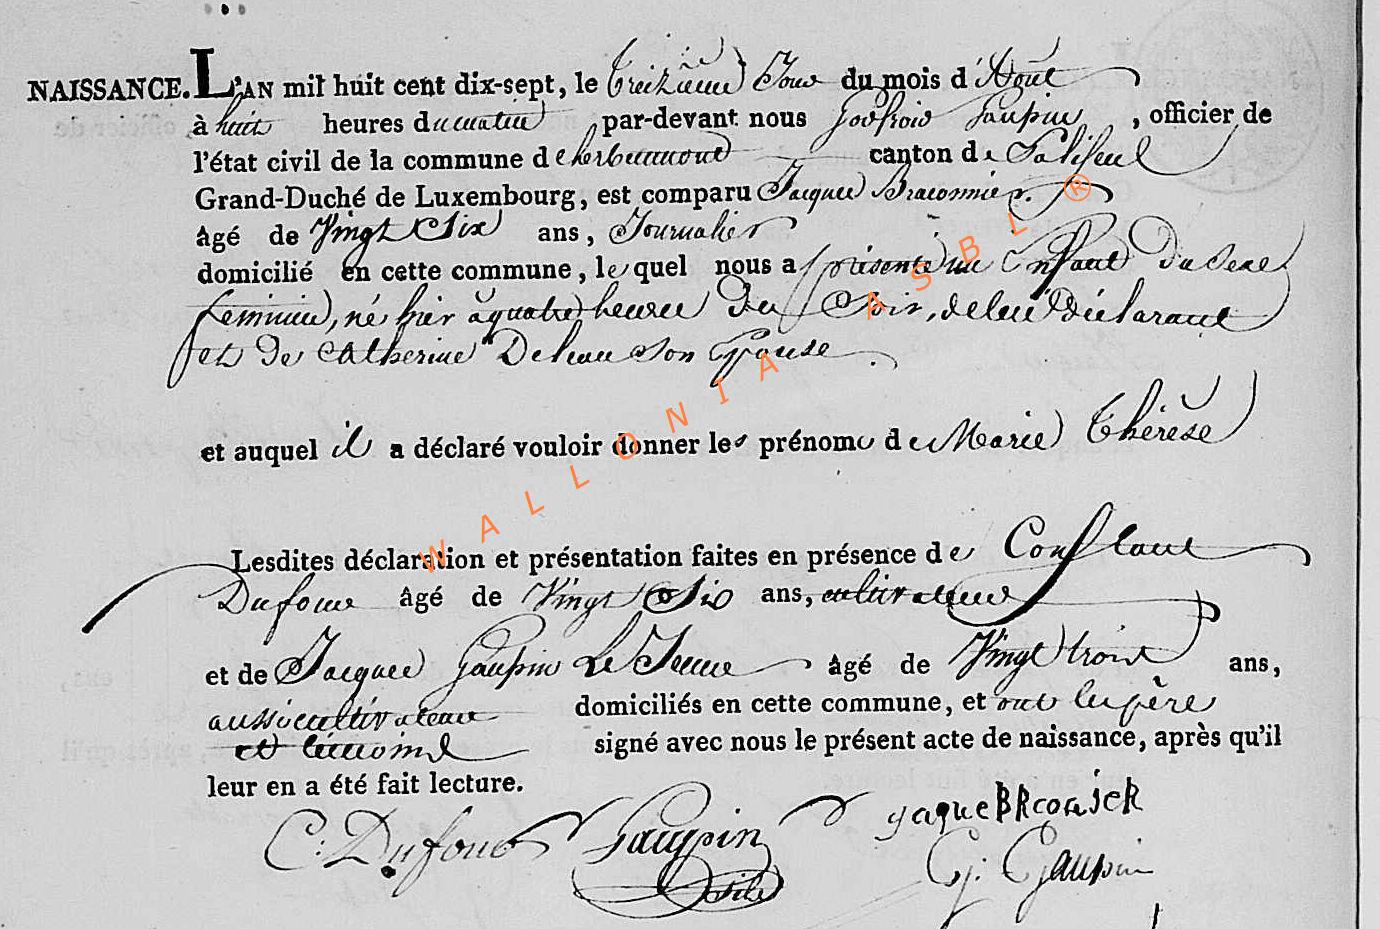 NAISSANCE. L'AN mil huit cent dix-sept, le treizieme Jour du mois d'Août
à huit heures du matin par-devant nous Godfroid Gaupin, officier de
l'état civil de la commune d'herbeumont canton de Paliseul
Grand-Duché de Luxembourg, est comparu Jacques Braconnier.
âgé de Vingt Six ans, Journalier
domicilié en cette commune, lequel nous a présenté un Enfant du Sexe
feminin, né hier à quatre heures du Soir, de lui déclarant
et de Catherine Deleau son Epouse.
et auquel il a déclaré vouloir donner les prénoms de Marie Thérèse
Lesdites déclaration et présentation faites en présence de Constant
Dufour âgé de Vingt Six ans, cultivateur
et de Jacques Gaupin Le Jeune âgé de Vingt trois ans,
aussi cultivateur domiciliés en cette commune, et ont le père
et temoins signé avec nous le présent acte de naissance, après qu'il
leur en a été fait lecture.
C. Dufour Gaupin yaque BRconieR
fils G. Gaupin
WALLONIA ASBL ®